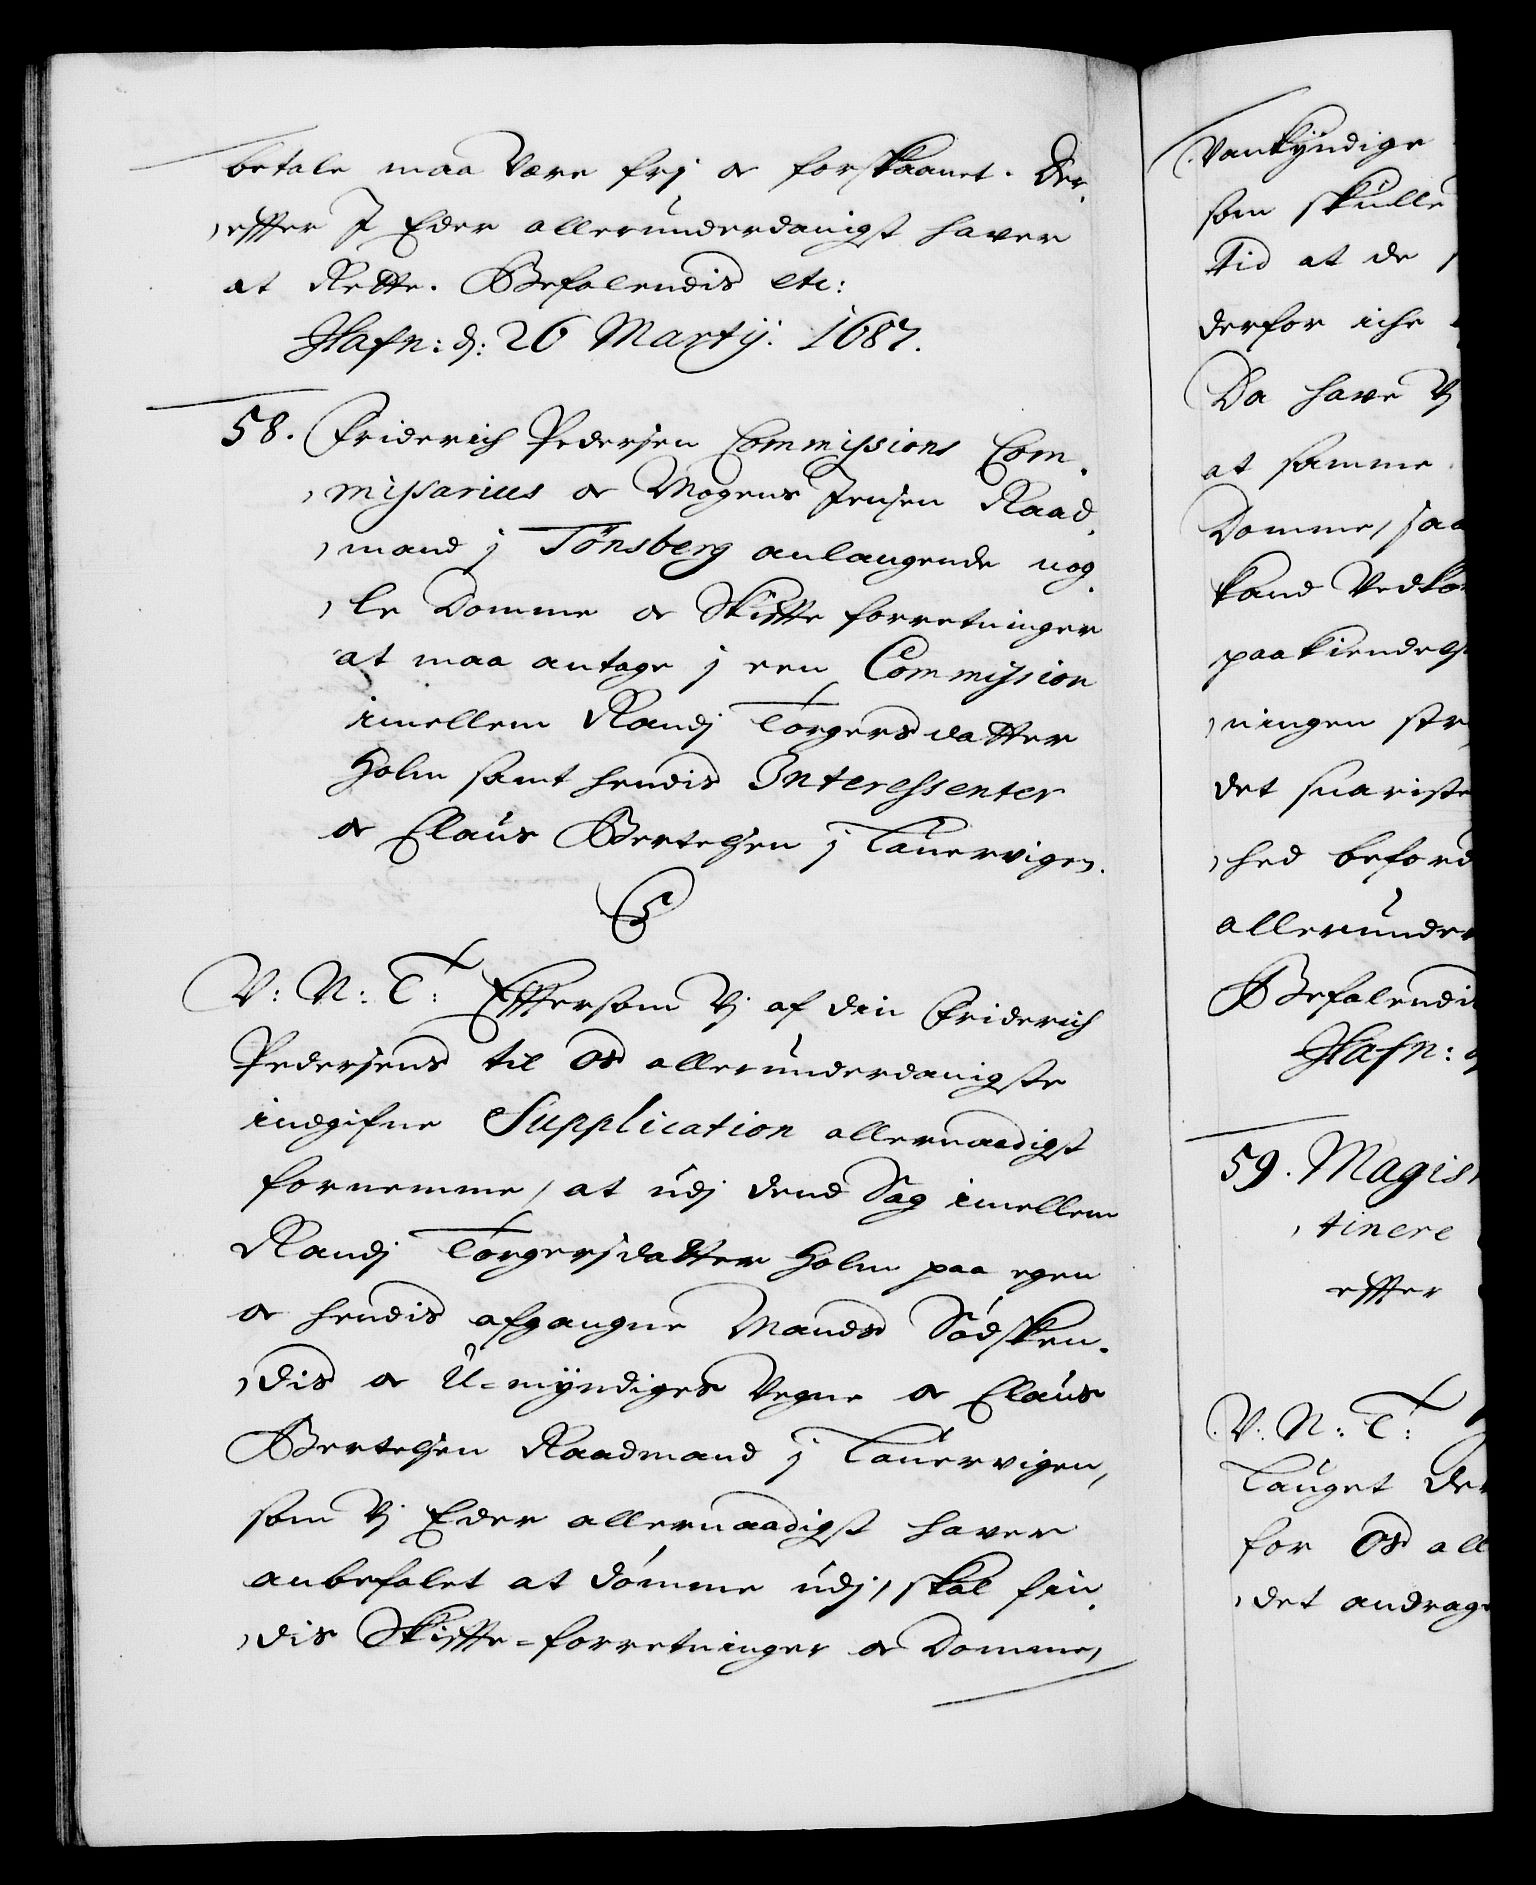 betale maa være frj oc forskaanet. Der,
,effter J Eder allerunderdanigst haver
at Rette. Befalendis etc:
Hafn: d: 26 Martij. 1687.
58. Friderich Pedersen Commissions Com,
,missarius oc Mogens Jensen Raad,
,mand j Tønsberg anlangende nog,
,le Domme oc Skiffte forretninger
at maa antage j een Commission
imellem Randj Torgersdatter
Holm samt hendis Interessenter
oc Claus Bertelsen j Laurvigen.
V: N: T: Effersom Vj af din Friderich
Pedersens til Os allerunderdanigste
indgifne Supplication allernaadigst
fornemme, at udj dend Sag imellem
Randj Torgersdatter Holm paa egen
oc hendis afgangne Mands Sødsken,
,dis oc U-myndiges Vegne oc Claus
Bertelsen Raadmand j Laurvigen,
som Vj Eder allernaadigst haver
anbefalet at dømme udj, skal fin,
,dis Skiffte-forretninger oc Domme,
Vankyndige
som skulle
tid at de
derfor iche
Da have Vj
at samme
Domme, saa
kand Vedko
paakiendels
,ningen str
det snariste
,hed beford
allerunder
Befalendi
Hafn:
59. Magis
,tinere
effter
V: N: T:
Lauget De
for Os all
,det andrag